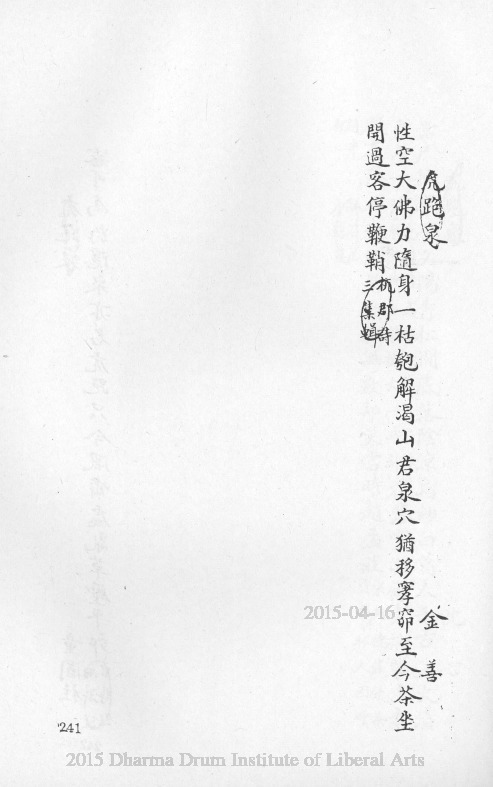 虎跑泉
金善
性空大佛力隨身一枯匏解渴山君泉穴猶移至今茶坐
開過客停鞭鞘
杭郡詩
三集輯
2015-04-16
241
2015 Dharma Drum Institute of Liberal Arts